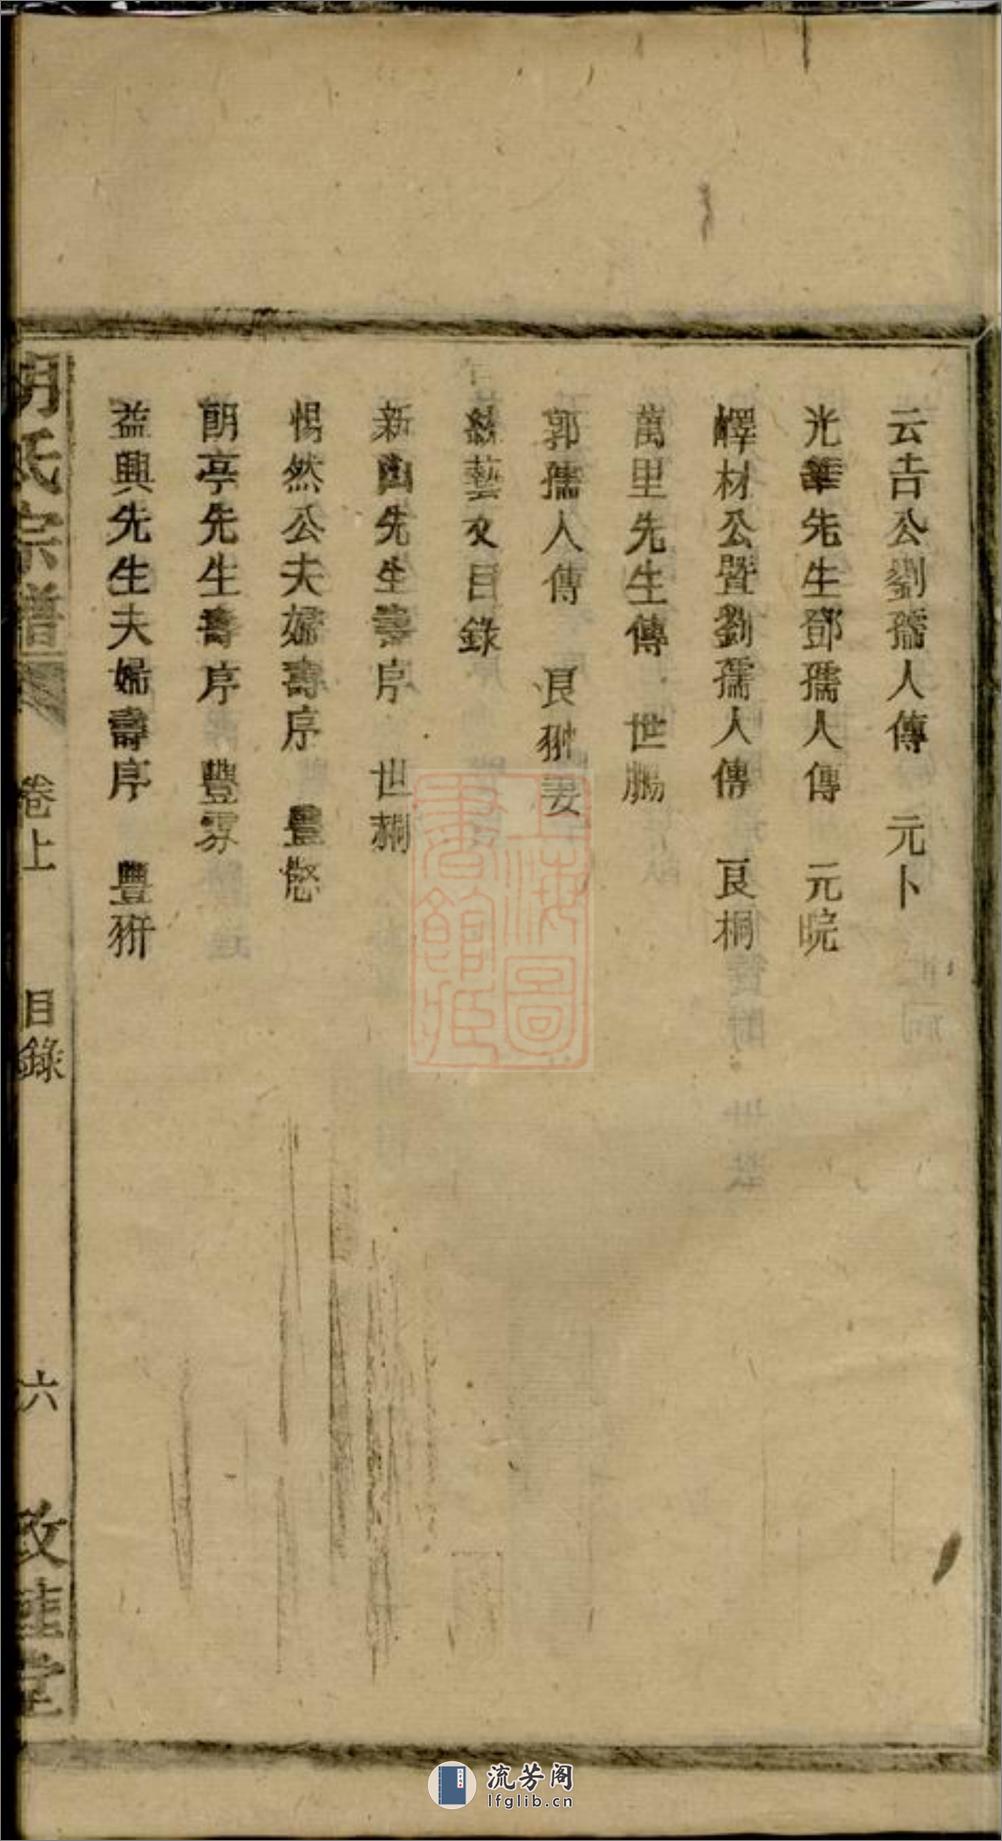 云吉公劉孺人傳 元卜
光華先生鄧孺人傳 元晥
嶧材公暨劉孺人傳 良桐
萬里先生傳 世鵬
郭孺人傳 良翀妻
藝文目錄
新先生壽序 世桐
惕然公夫婦壽序 豊
朗亭先生壽序 豐雰
益興先生夫婦壽序 豐
胡氏宗譜 卷上 目錄 六 堂
上海圖書館藏
流芳阁
lfglib.cn